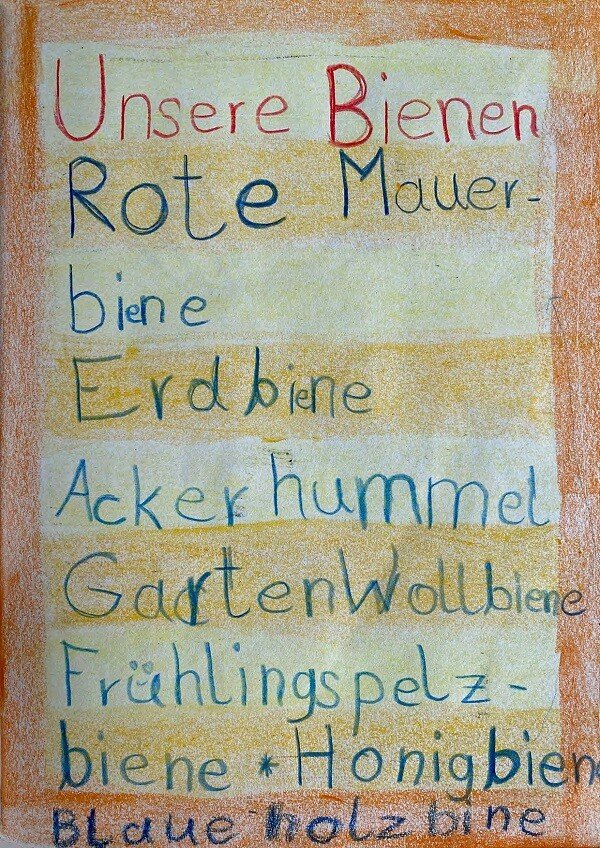 Unsere Bienen
Rote Mauer-
biene
Erdbiene
Ackerhummel
GartenWollbiene
Frühlingspelz-
biene * Honigbien
BLaue holzbine